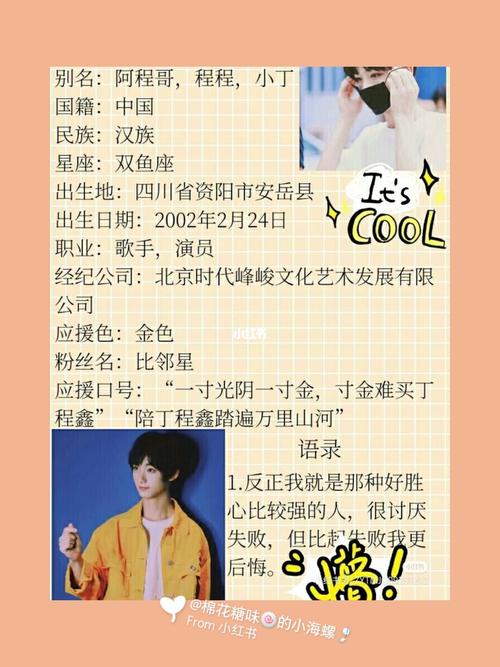 别名：阿程哥，程程，小丁
国籍：中国
民族：汉族
星座：双鱼座
出生地：四川省资阳市安岳县
出生日期：2002年2月24日
职业：歌手，演员
经纪公司：北京时代峰峻文化艺术发展有限
公司
应援色：金色
粉丝名：比邻星
应援口号：“一寸光阴一寸金，寸金难买丁
程鑫”“陪丁程鑫踏遍万里山河”
It's
COOL
小红书
语录
1.反正我就是那种好胜
心比较强的人，很讨厌
失败，但比起失败我更
后悔。
小红书
@棉花糖味🍥的小海螺
From 小红书